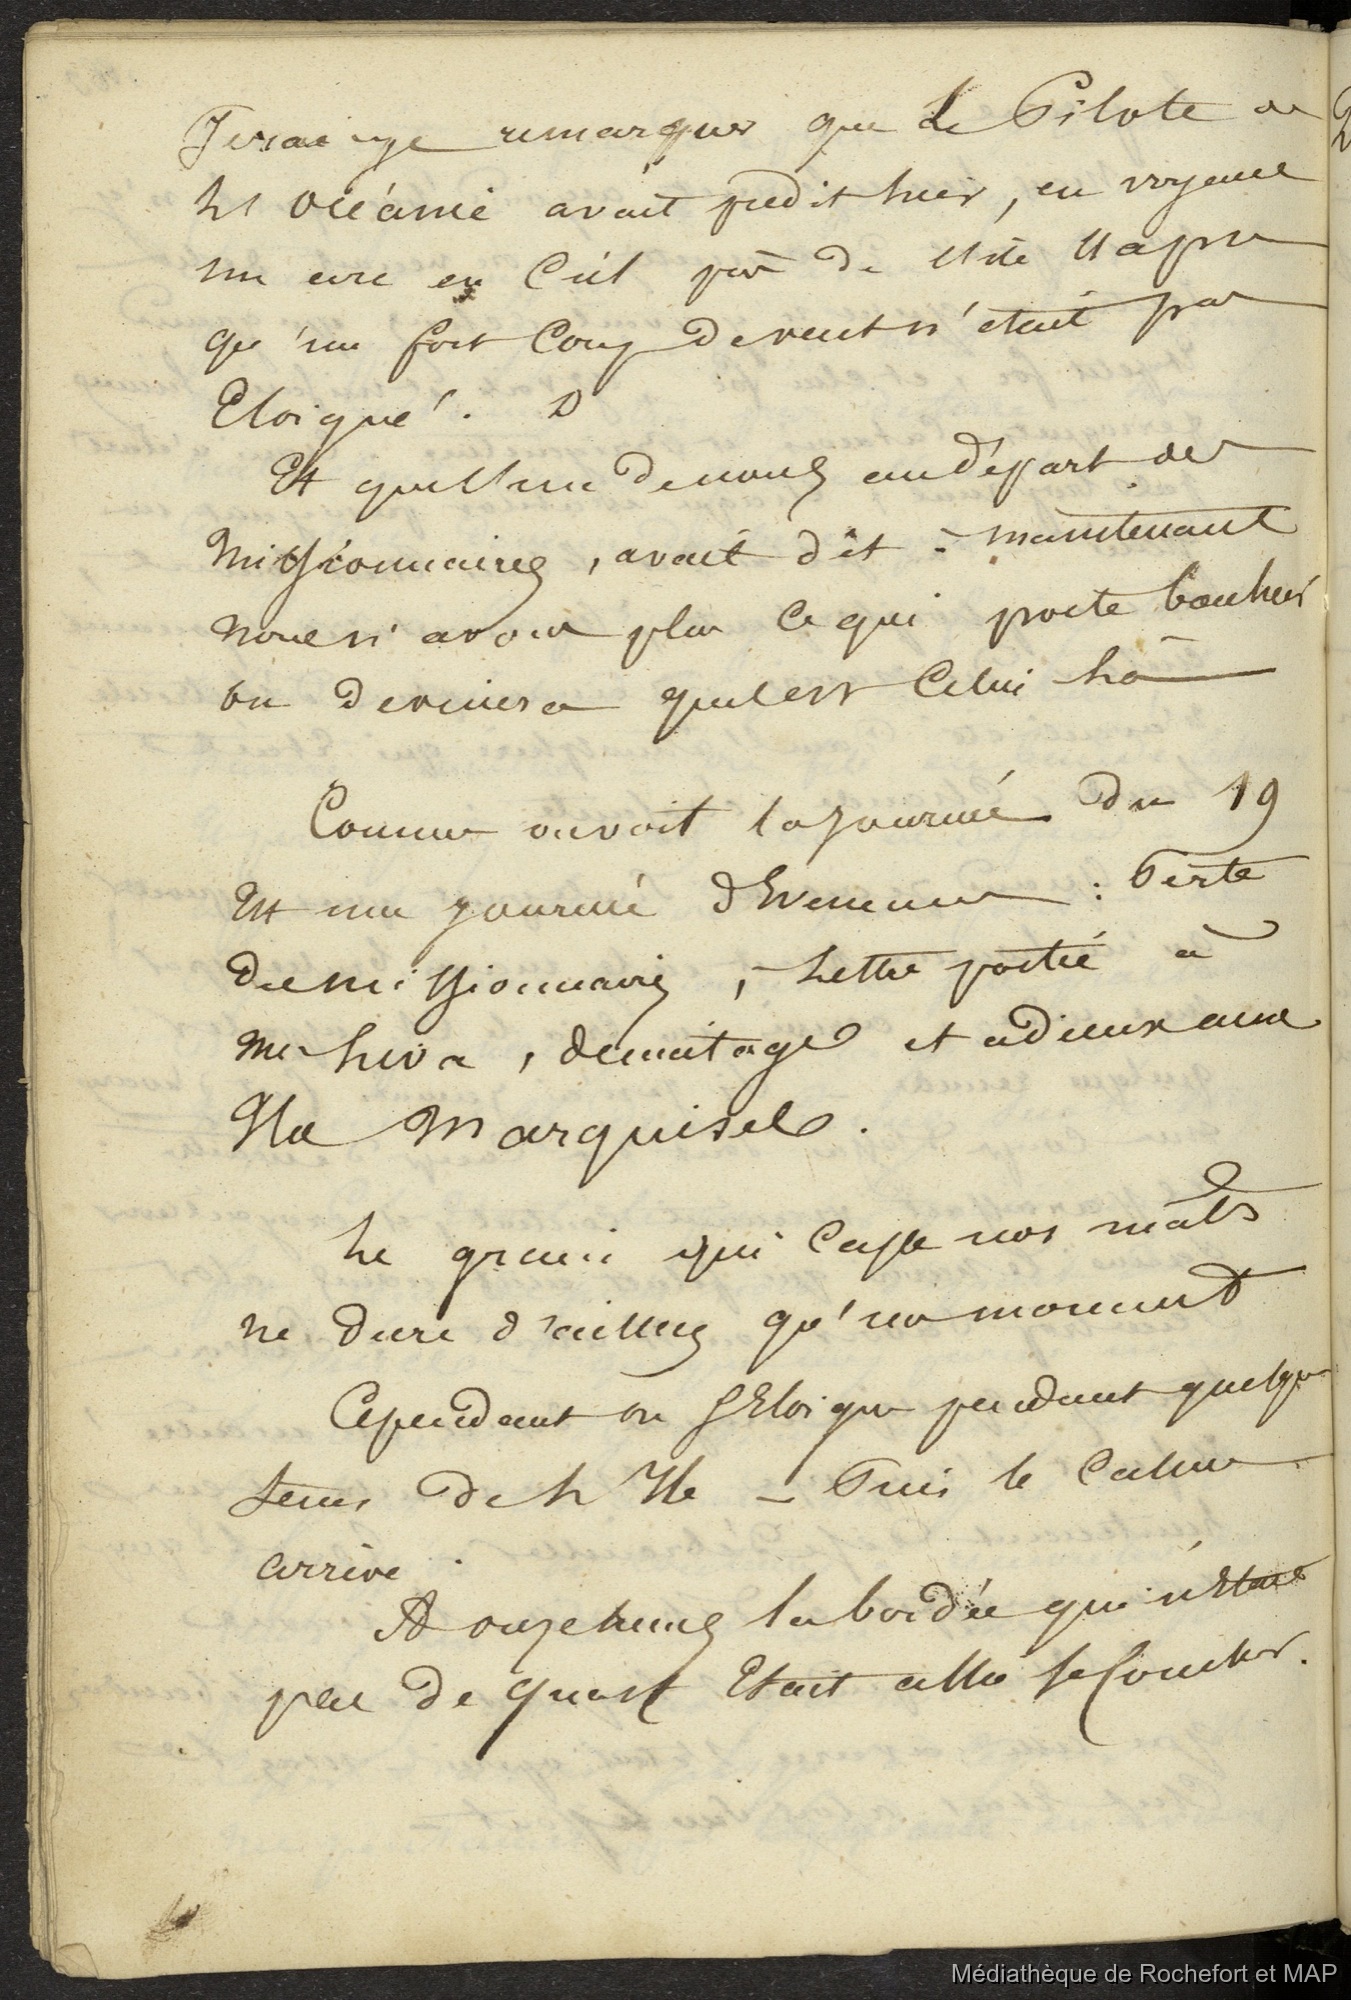 Ferai-je remarquer que le Pilote de
l'Océanie avait predit hier, en voyant
un arc en Ciel près de l'Ile Uapou
qu'un fort Coup de vent n'etait pas
Eloigné.
Et que l'un de nous au départ des
Missionnaires, avait dit : maintenant
nous n'avons plus ce qui porte bonheur
on devinera quel est Celui là
Comme on voit la journée du 19
Est une journée d'Evenemens : Perte
de missionnaires, Lettre portée à
Nuhiva, démâtage et adieux aux
Iles Marquises.
Le grain qui Casse nos mâts
ne dure d'ailleurs qu'un moment
Cependant on s'Eloigne pendant quelque
tems de l'Ile – Puis le Calme
arrive.
A onze heures la bordée qui n'Etait
pas de quart Etait allée se Coucher.
Médiathèque de Rochefort et MAP